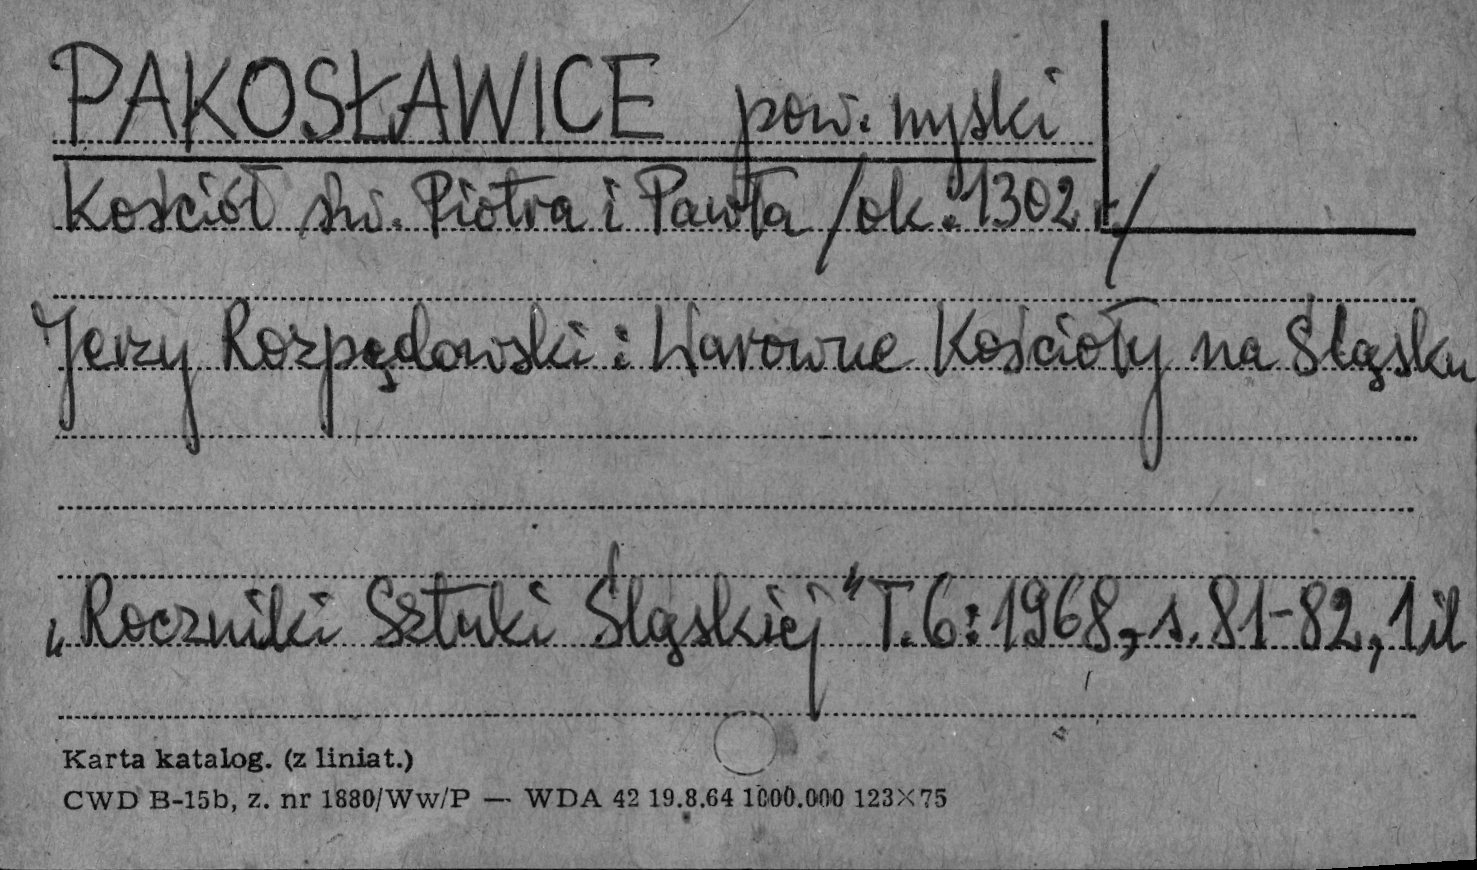 PAKOSŁAWICE pow. nyski
Kościół św. Piotra i Pawła /ok. 1302 r/
Jerzy Rozpędowski: Warowne Kościoły na Śląsku
„Roczniki Sztuki Śląskiej" T.6:1968, s. 81-82, 1il
Karta katalog. (z liniat.)
CWD B-15b, z. nr 1880/Ww/P — WDA 42 19.8.64 1000.000 123×75